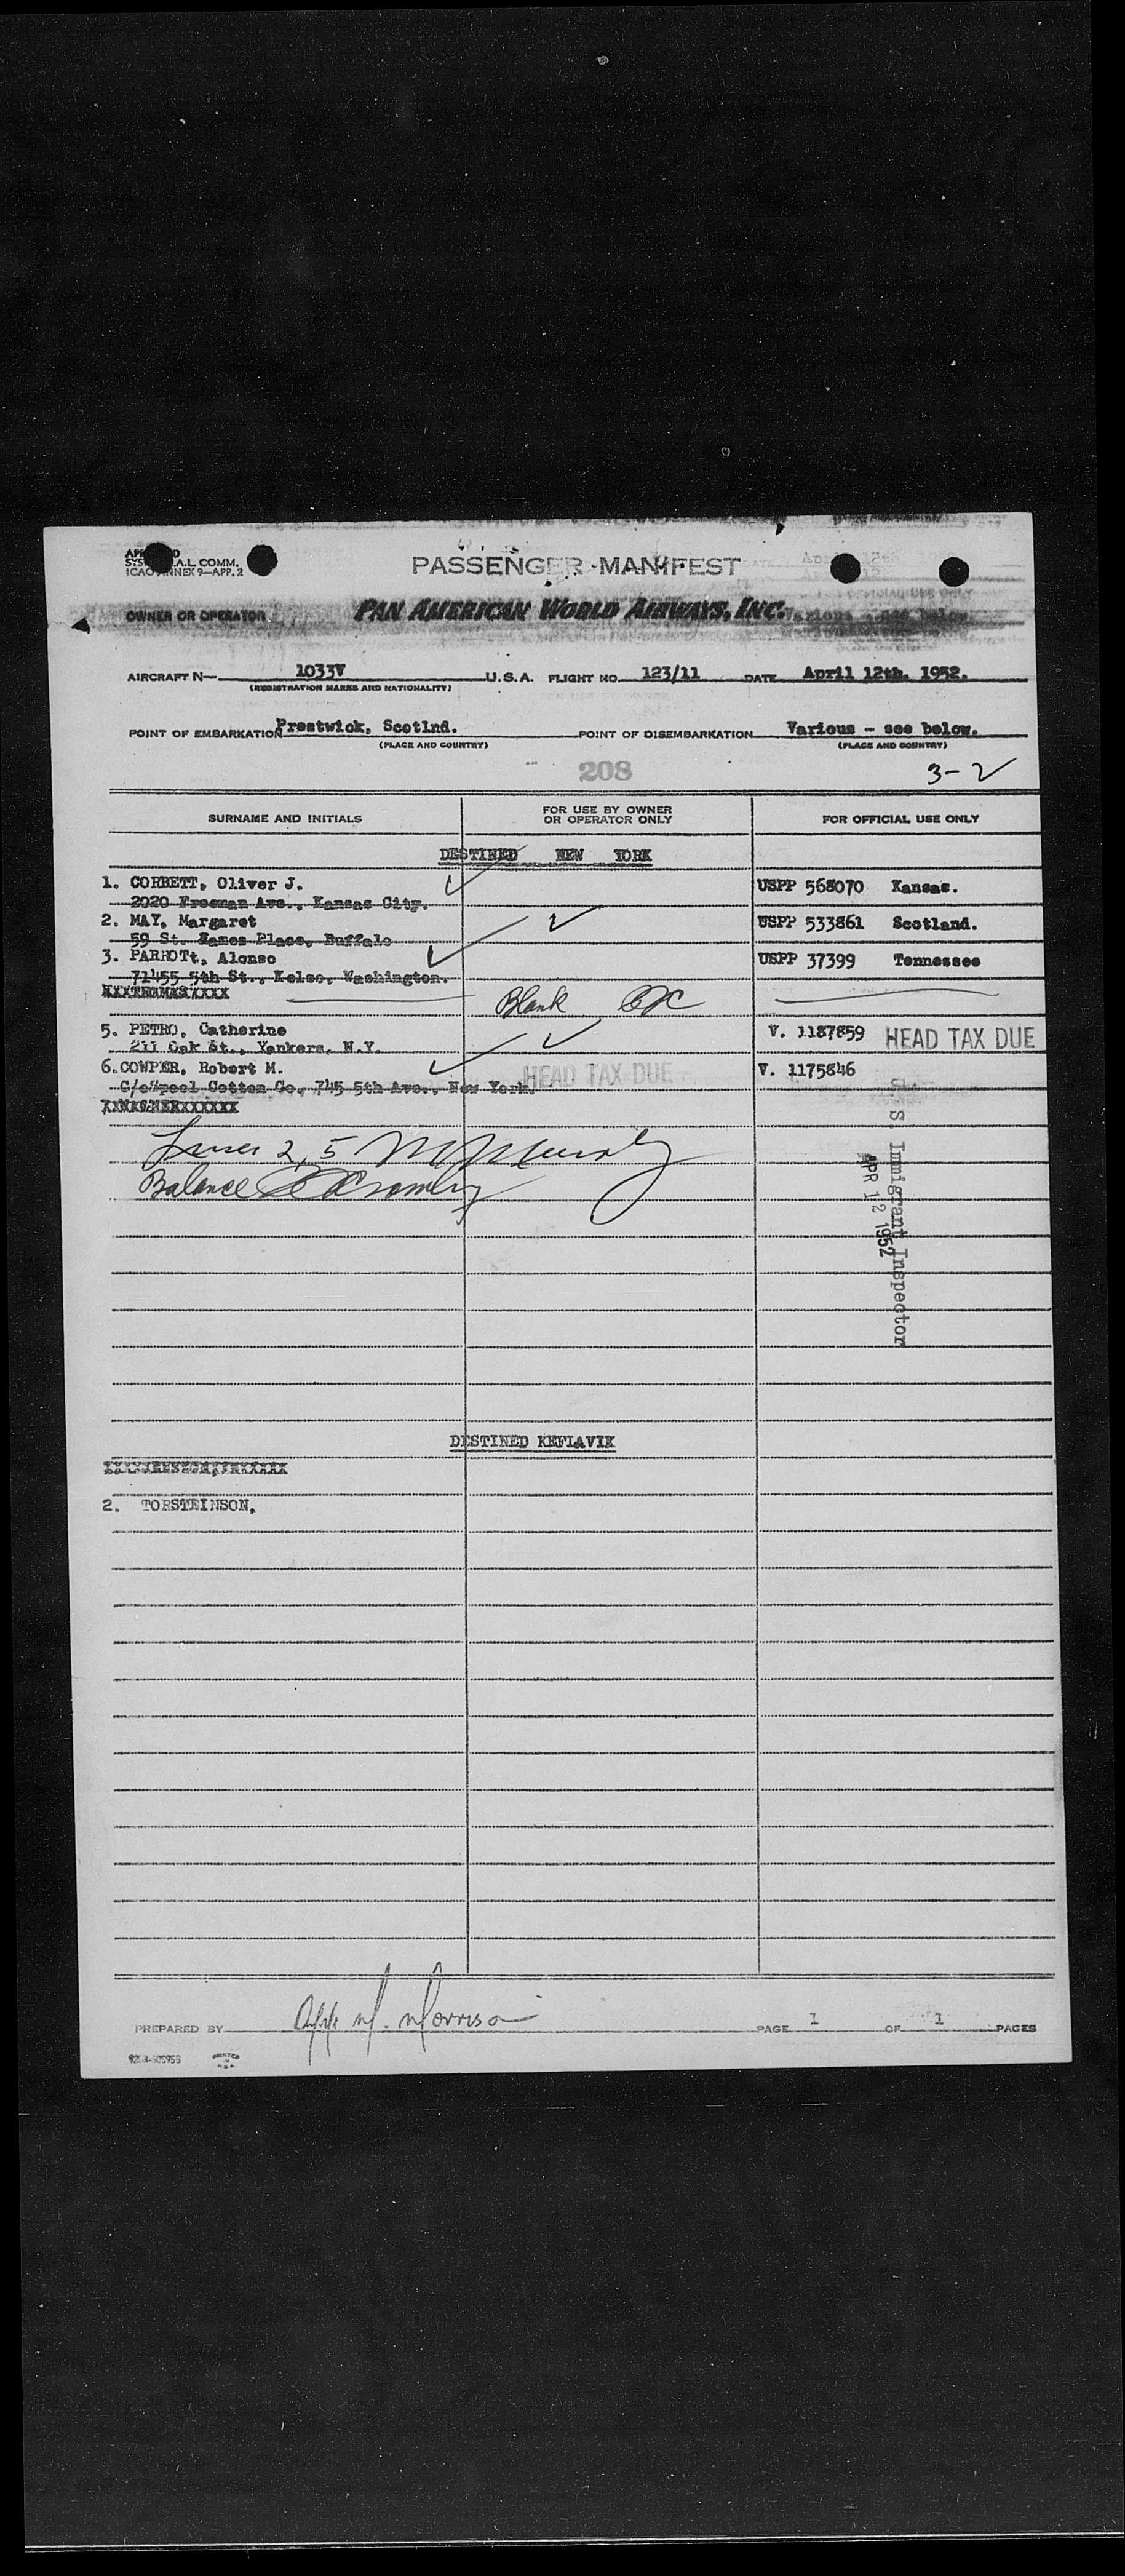 S. A.L. COMM.
ICAO ANNEX 9—APP. 2
PASSENGER MANIFEST
OWNER OR OPERATOR PAN AMERICAN WORLD AIRWAYS, INC.
AIRCRAFT N— 1033V U.S.A. FLIGHT NO. 123/11 DATE April 12th. 1952.
(REGISTRATION MARKS AND NATIONALITY)
POINT OF EMBARKATION Prestwick, Scotlnd. POINT OF DISEMBARKATION Various - see below.
(PLACE AND COUNTRY) (PLACE AND COUNTRY)
208 3-2
SURNAME AND INITIALS FOR USE BY OWNER OR OPERATOR ONLY FOR OFFICIAL USE ONLY
DESTINED NEW YORK
1. CORBETT, Oliver J. USPP 568070 Kansas.
2020 Freeman Ave., Kansas City.
2. MAY, Margaret USPP 533861 Scotland.
59 St. James Place, Buffalo
3. PARROTt, Alonso USPP 37399 Tennessee
71455 5th St., Kelso, Washington.
Blank
5. PETRO, Catherine V. 1187859 HEAD TAX DUE
211 Oak St., Yonkers, N.Y.
6. COWPER, Robert M. V. 1175846
HEAD TAX DUE
C/o Cotton Co, 745 5th Ave., New York.
2, 5
Balance
S. Immigrant Inspector
APR 12 1952
DESTINED KEFLAVIK
2. TORSTEINSON.
PREPARED BY M. Morrison PAGE 1 OF 1 PAGES
PRINTED IN U.S.A.